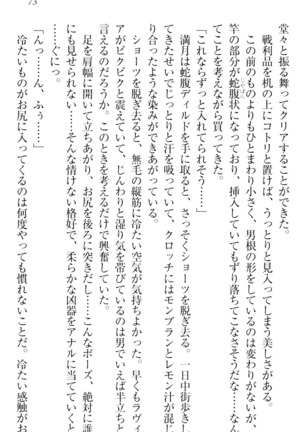 堂々と振る舞ってクリアすることができた。
戦利品を机の上にコトリと置けば、うっとりと見入ってしまう美しさがある。
この前のものよりもひとまわり小さく、男根の形をしているのは変わりがないが、
竿の部分が蛇腹状になっており、挿入していてもずり落ちてこなさそうだな……など
ということを考えながら買ってきた。
「これならずっと入れてられそう……」
満月は蛇腹ディルドを手に取ると、さっそくショーツを脱ぎ去る。一日中街歩きし
てきたせいでじっとりと汗を吸っていて、クロッチにはモンブランとレモン汁が混じ
り合ったような染みができあがっている。
ショーツを脱ぎ去ると、無毛の縦筋に冷たい空気が気持ちよかった。早くもラヴィ
アがピクピクと震えていて、じんわりと湿り気を帯びているのは男でいえば半立ちと
言えるのだろうか。このときを考えるだけで興奮していた。
足を肩幅に開いて立ちあがり、お尻を後ろに突きだし……こんなポーズ、絶対に誰
にも見せられない……そんな情けない格好で、柔らかな凶器をアナルに当てていくと
……ぐにっ。
「んっ……ん、ふぅ……」
冷たいものがお尻に入ってくるのは何度やっても慣れないことだ。冷たい感触がお